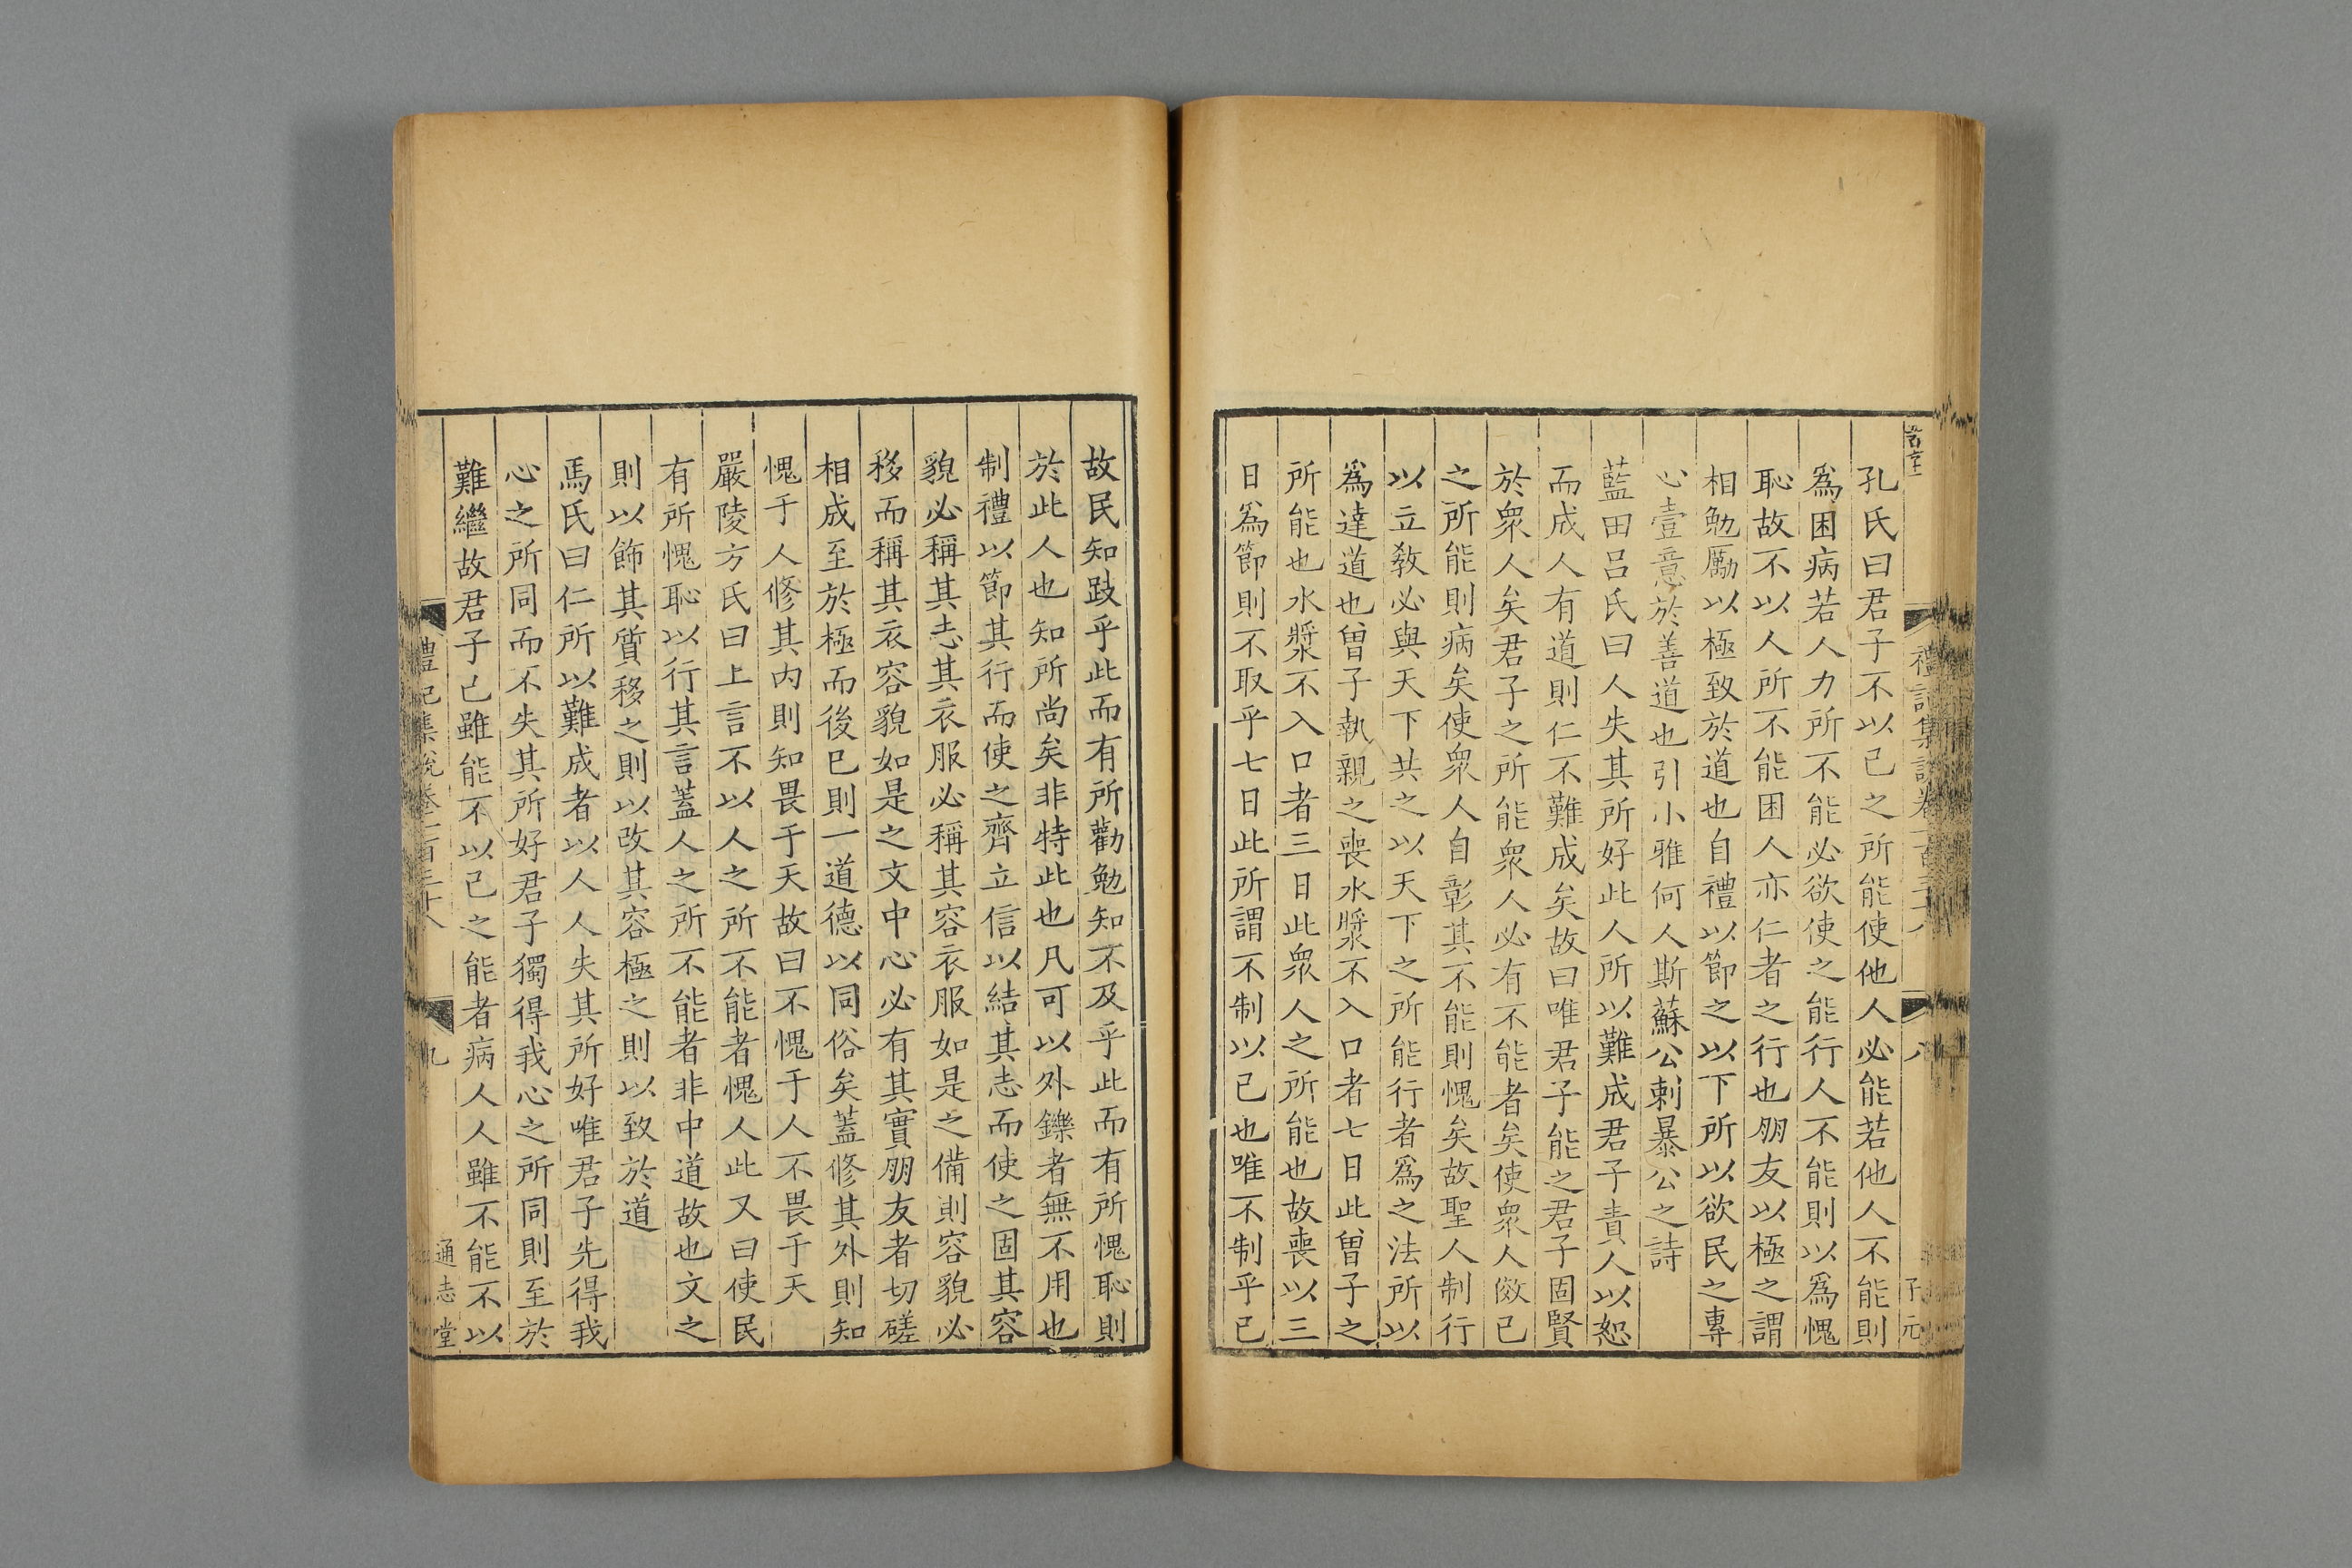 孔氏曰君子不以己之所能使他人必能若他人不能則
爲困病若人力所不能必欲使之能行人不能則以爲愧
恥故不以人所不能困人亦仁者之行也朋友以極之謂
相勉厲以極致於道也自禮以節之以下所以欲民之專
心壹意於善道也引小雅何人斯蘇公刺暴公之詩
藍田呂氏曰人失其所好此人所以難成君子責人以恕
而成人有道則仁不難成矣故曰唯君子能之君子固賢
於衆人矣君子之所能衆人必有不能者矣使衆人傚己
之所能則病矣使衆人自彰其不能則愧矣故聖人制行
以立教必與天下共之以天下之所能行者爲之法所以
爲達道也曾子執親之喪水漿不入口者七日此曾子之
所能也水漿不入口者三日此衆人之所能也故喪以三
日爲節則不取乎七日此所謂不制以己也唯不制乎己
禮記集說卷一百三十八
八
子元
故民知跂乎此而有所勸勉知不及乎此而有所愧恥則
於此人也知所尚矣非特此也凡可以外鑠者無不用也
制禮以節其行而使之齊立信以結其志而使之固其容
貌必稱其志其衣服必稱其容衣服如是之備則容貌必
移而稱其衣容貌如是之文中心必有其實朋友者切磋
相成至於極而後已則一道德以同俗矣蓋修其外則知
愧于人修其內則知畏于天故曰不愧于人不畏于天
嚴陵方氏曰上言不以人之所不能者愧人此又曰使民
有所愧恥以行其言蓋人之所不能者非中道故也文之
則以飾其質移之則以改其容極之則以致於道
馬氏曰仁所以難成者以人人失其所好唯君子先得我
心之所同而不失其所好君子獨得我心之所同則至於
難繼故君子己雖能不以己之能者病人人雖不能不以
禮記集說卷一百三十八
九
通志堂